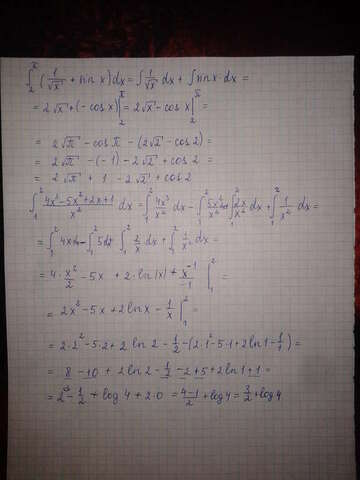 ∫₂^π (1/√x + sin x) dx = ∫ 1/√x dx + ∫ sin x · dx =
= 2√x + (-cos x) |₂^π = 2√x - cos x |₂^π =
= 2√π - cos π - (2√2 - cos 2) =
= 2√π - (-1) - 2√2 + cos 2 =
= 2√π + 1 - 2√2 + cos 2
∫₁² (4x³ - 5x² + 2x + 1)/x² dx = ∫₁² 4x³/x² dx - ∫₁² 5x²/x² + ∫₁² 2x/x² dx + ∫₁² 1/x² dx =
= ∫₁² 4x dx - ∫₁² 5 dx ∫₁² 2/x dx + ∫₁² 1/x² dx =
= 4 · x²/2 - 5x + 2 · ln |x| + x⁻¹/-1 |₁² =
= 2x² - 5x + 2 ln x - 1/x |₁² =
= 2·2² - 5·2 + 2 ln 2 - 1/2 - (2·1² - 5·1 + 2 ln 1 - 1/1) =
= 8 - 10 + 2 ln 2 - 1/2 - 2 + 5 + 2 ln 1 + 1 =
= 2 - 1/2 + log 4 + 2·0 = (4-1)/2 + log 4 = 3/2 + log 4